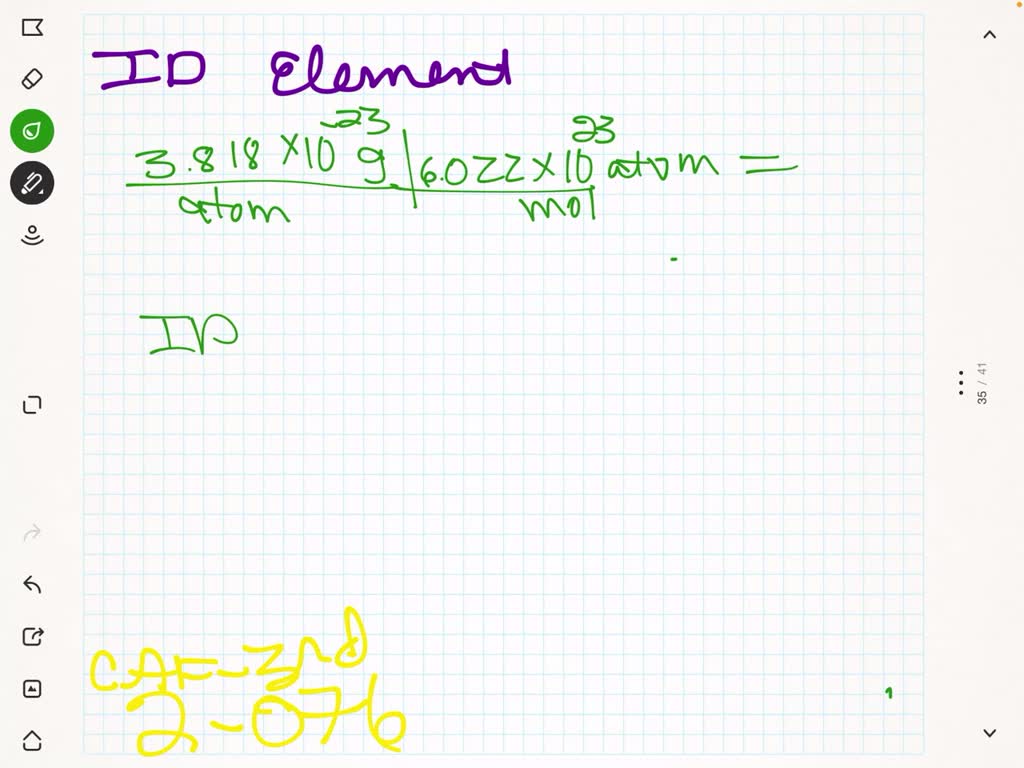 ID Element
3.818 ×10⁻²³ g | 6.022 ×10²³ atom =
atom mol
ID
CAF-3rd
2-076
35 / 41
1